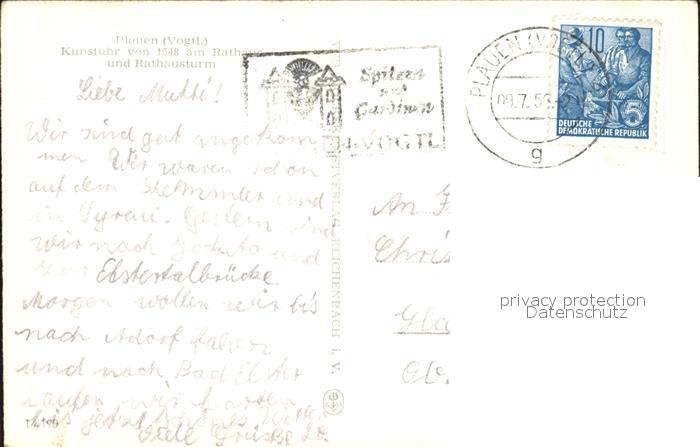 Plauen (Vogtl.)
Kunstuhr von 1548 am Rathaus
und Rathausturm
Liebe Mutti!
Wir sind gut angekom
men Wir waren schon
auf dem Kemmler und
in Syrau. Gestern sind
wir nach Jocketa und
zur Elstertalbrücke.
Morgen wollen wir bis
nach Adorf fahren
und nach Bad Elster
laufen wir haben
bis jetzt schönes Wetter
Viele Grüße
14190
VERLAG REICHENBACH I. V.
Spitzen
und
Gardinen
i. VOGTL
PLAUEN (VOGTL)
09.7.56
g
10
5
DEUTSCHE
DEMOKRATISCHE REPUBLIK
An
Chris
Gla
Ob.
privacy protection
Datenschutz